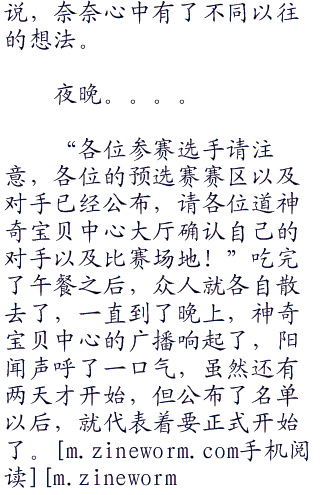 说，奈奈心中有了不同以往
的想法。
夜晚。。。。
“各位参赛选手请注
意，各位的预选赛赛区以及
对手已经公布，请各位道神
奇宝贝中心大厅确认自己的
对手以及比赛场地！”吃完
了午餐之后，众人就各自散
去了，一直到了晚上，神奇
宝贝中心的广播响起了，阳
闻声呼了一口气，虽然还有
两天才开始，但公布了名单
以后，就代表着要正式开始
了。[m.zineworm.com手机阅
读][m.zineworm